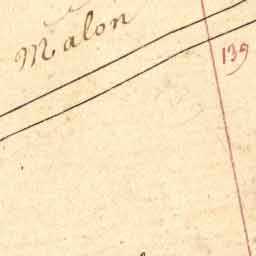 Malon
139